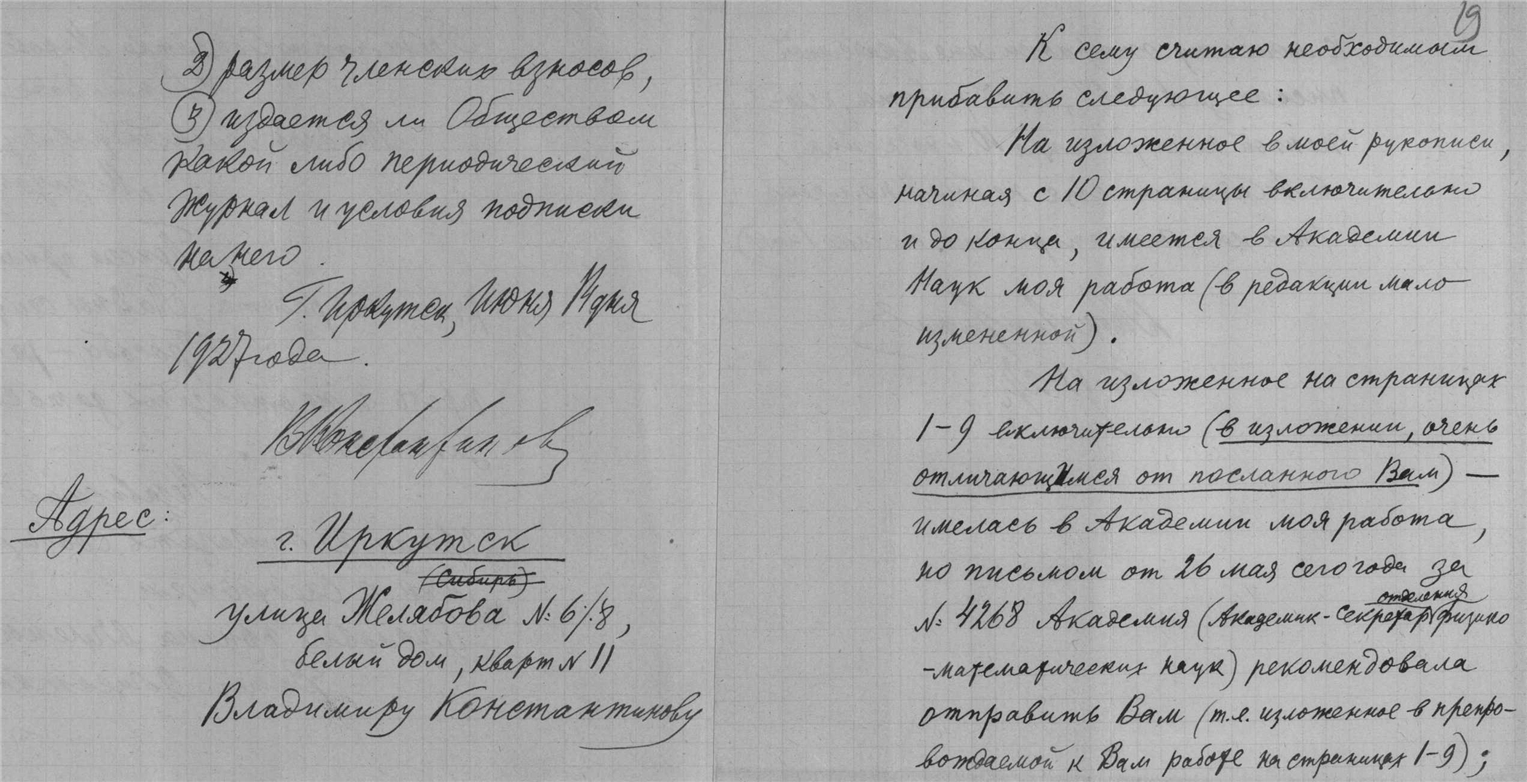 2) размер членских взносов,
3) издается ли Обществом
какой либо периодический
журнал и условия подписки
на него.
Г. Иркутск, июня дня
1927 года.
ВКонстантинов
Адрес:
г. Иркутск
(Сибирь)
улица Желябова №: 6/:8,
белый дом, кварт № 11
Владимиру Константинову
19
К сему считаю необходимым
прибавить следующее:
На изложенное в моей рукописи,
начиная с 10 страницы включительно
и до конца, имеется в Академии
Наук моя работа (в редакции мало
измененной).
На изложенное на страницах
1-9 включительно (в изложении, очень
отличающимся от посланного Вам) —
имелась в Академии моя работа,
но письмом от 26 мая сего года за
№: 4268 Академия (Академик-Секретарь отделения физико
-математических наук) рекомендовала
отправить Вам (т.е. изложенное в препро-
вождаемой к Вам работе на страницах 1-9);